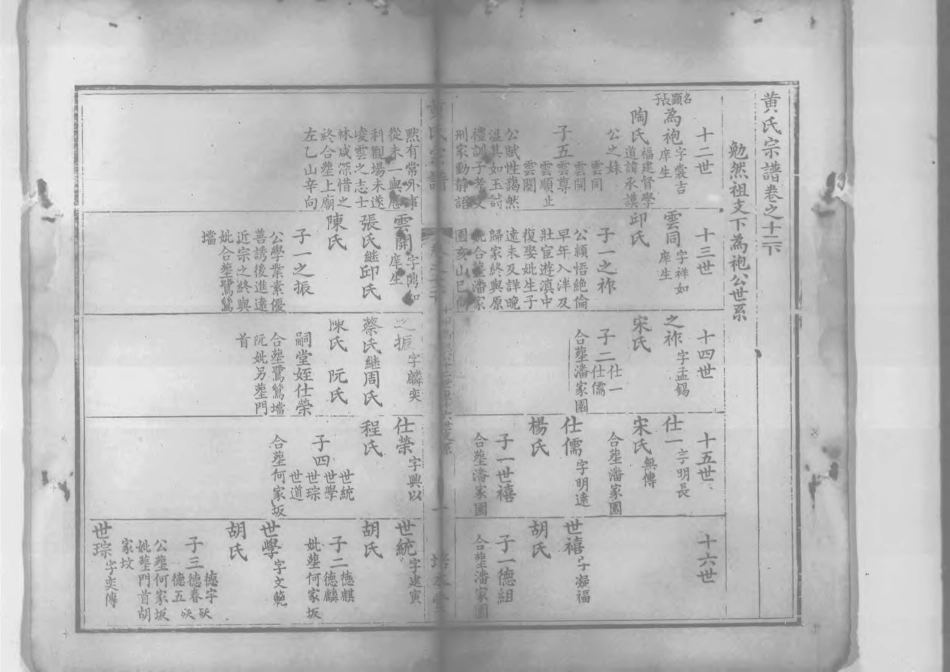 黄氏宗譜卷之十二下
勉然祖支下為袍公世系
十二世
十三世
十四世
十五世
十六世
名顯長子
為袍
字裳吉
庠生
陶氏
福建督學
道諱承謨
公之妹
子五
雲同
雲開
雲尊
雲順止
雲閣
公賦性藹然
溫其如玉訥
禮訓子孝友
刑家動靜語
默有常外事
從未一與應
科觀場未遂
凌雲之志士
林咸深惜之
終合塟上廟
左乙山辛向
雲同
字祥如
庠生
邱氏
子一之祚
公穎悟絕倫
早年入泮及
壯宦遊滇中
復娶妣生子
遠未及詳晚
歸家終與原
妣合塟潘家
園亥山巳向
雲開
字陶如
庠生
張氏繼邱氏
陳氏
子一之振
公學業素優
善誘後進遠
近宗之終與
妣合塟鷺鷥
壋
之祚
字孟錫
宋氏
子二
仕一
仕儒
合塟潘家園
之振
字麟奕
蔡氏繼周氏
陳氏 阮氏
嗣堂姪仕榮
合塟鷺鷥壋
阮妣另塟門
首
仕一
字明長
宋氏
無傳
合塟潘家園
仕儒
字明遠
楊氏
子一世禧
合塟潘家園
仕榮
字興以
程氏
子四
世統
世學
世琮
世道
合塟何家坂
世禧
字凝福
胡氏
子一德組
合塟潘家園
世統
字建寅
胡氏
子二
德麒
德麟
妣塟何家坂
世學
字文範
胡氏
子三
德字
德春
德五
公塟何家坂
妣塟門首胡
家坟
世琮
字奕傳